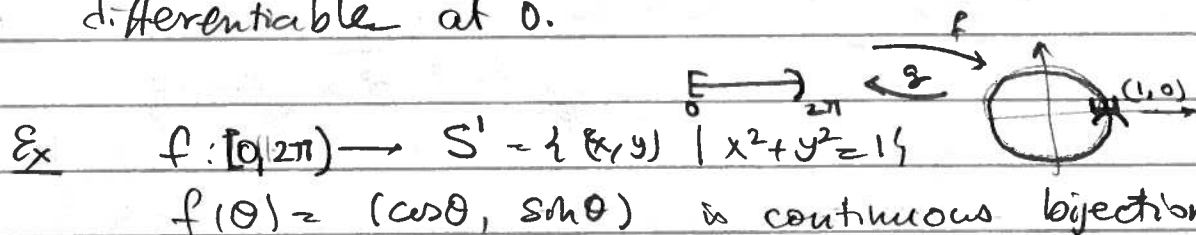 differentiable at 0.
f
[ ) g (1,0)
0 2π
Ex f : [0, 2π) → S¹ = { (x, y) | x² + y² = 1 }
f(θ) = (cosθ, sinθ) is continuous bijection